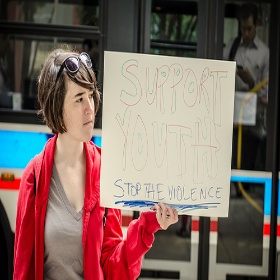 SUPPORT
YOUTH
STOP THE VIOLENCE